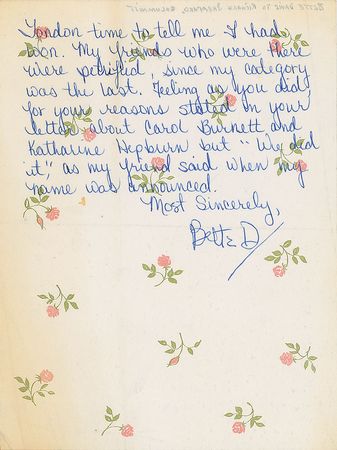 London time to tell me I had
won. My friends who were there
were petrified, since my category
was the last. Feeling as you did
for your reasons stated in your
letter about Carol Burnett and
Katharine Hepburn but "We did
it", as my friend said when my
name was announced.
Most Sincerely,
Bette D